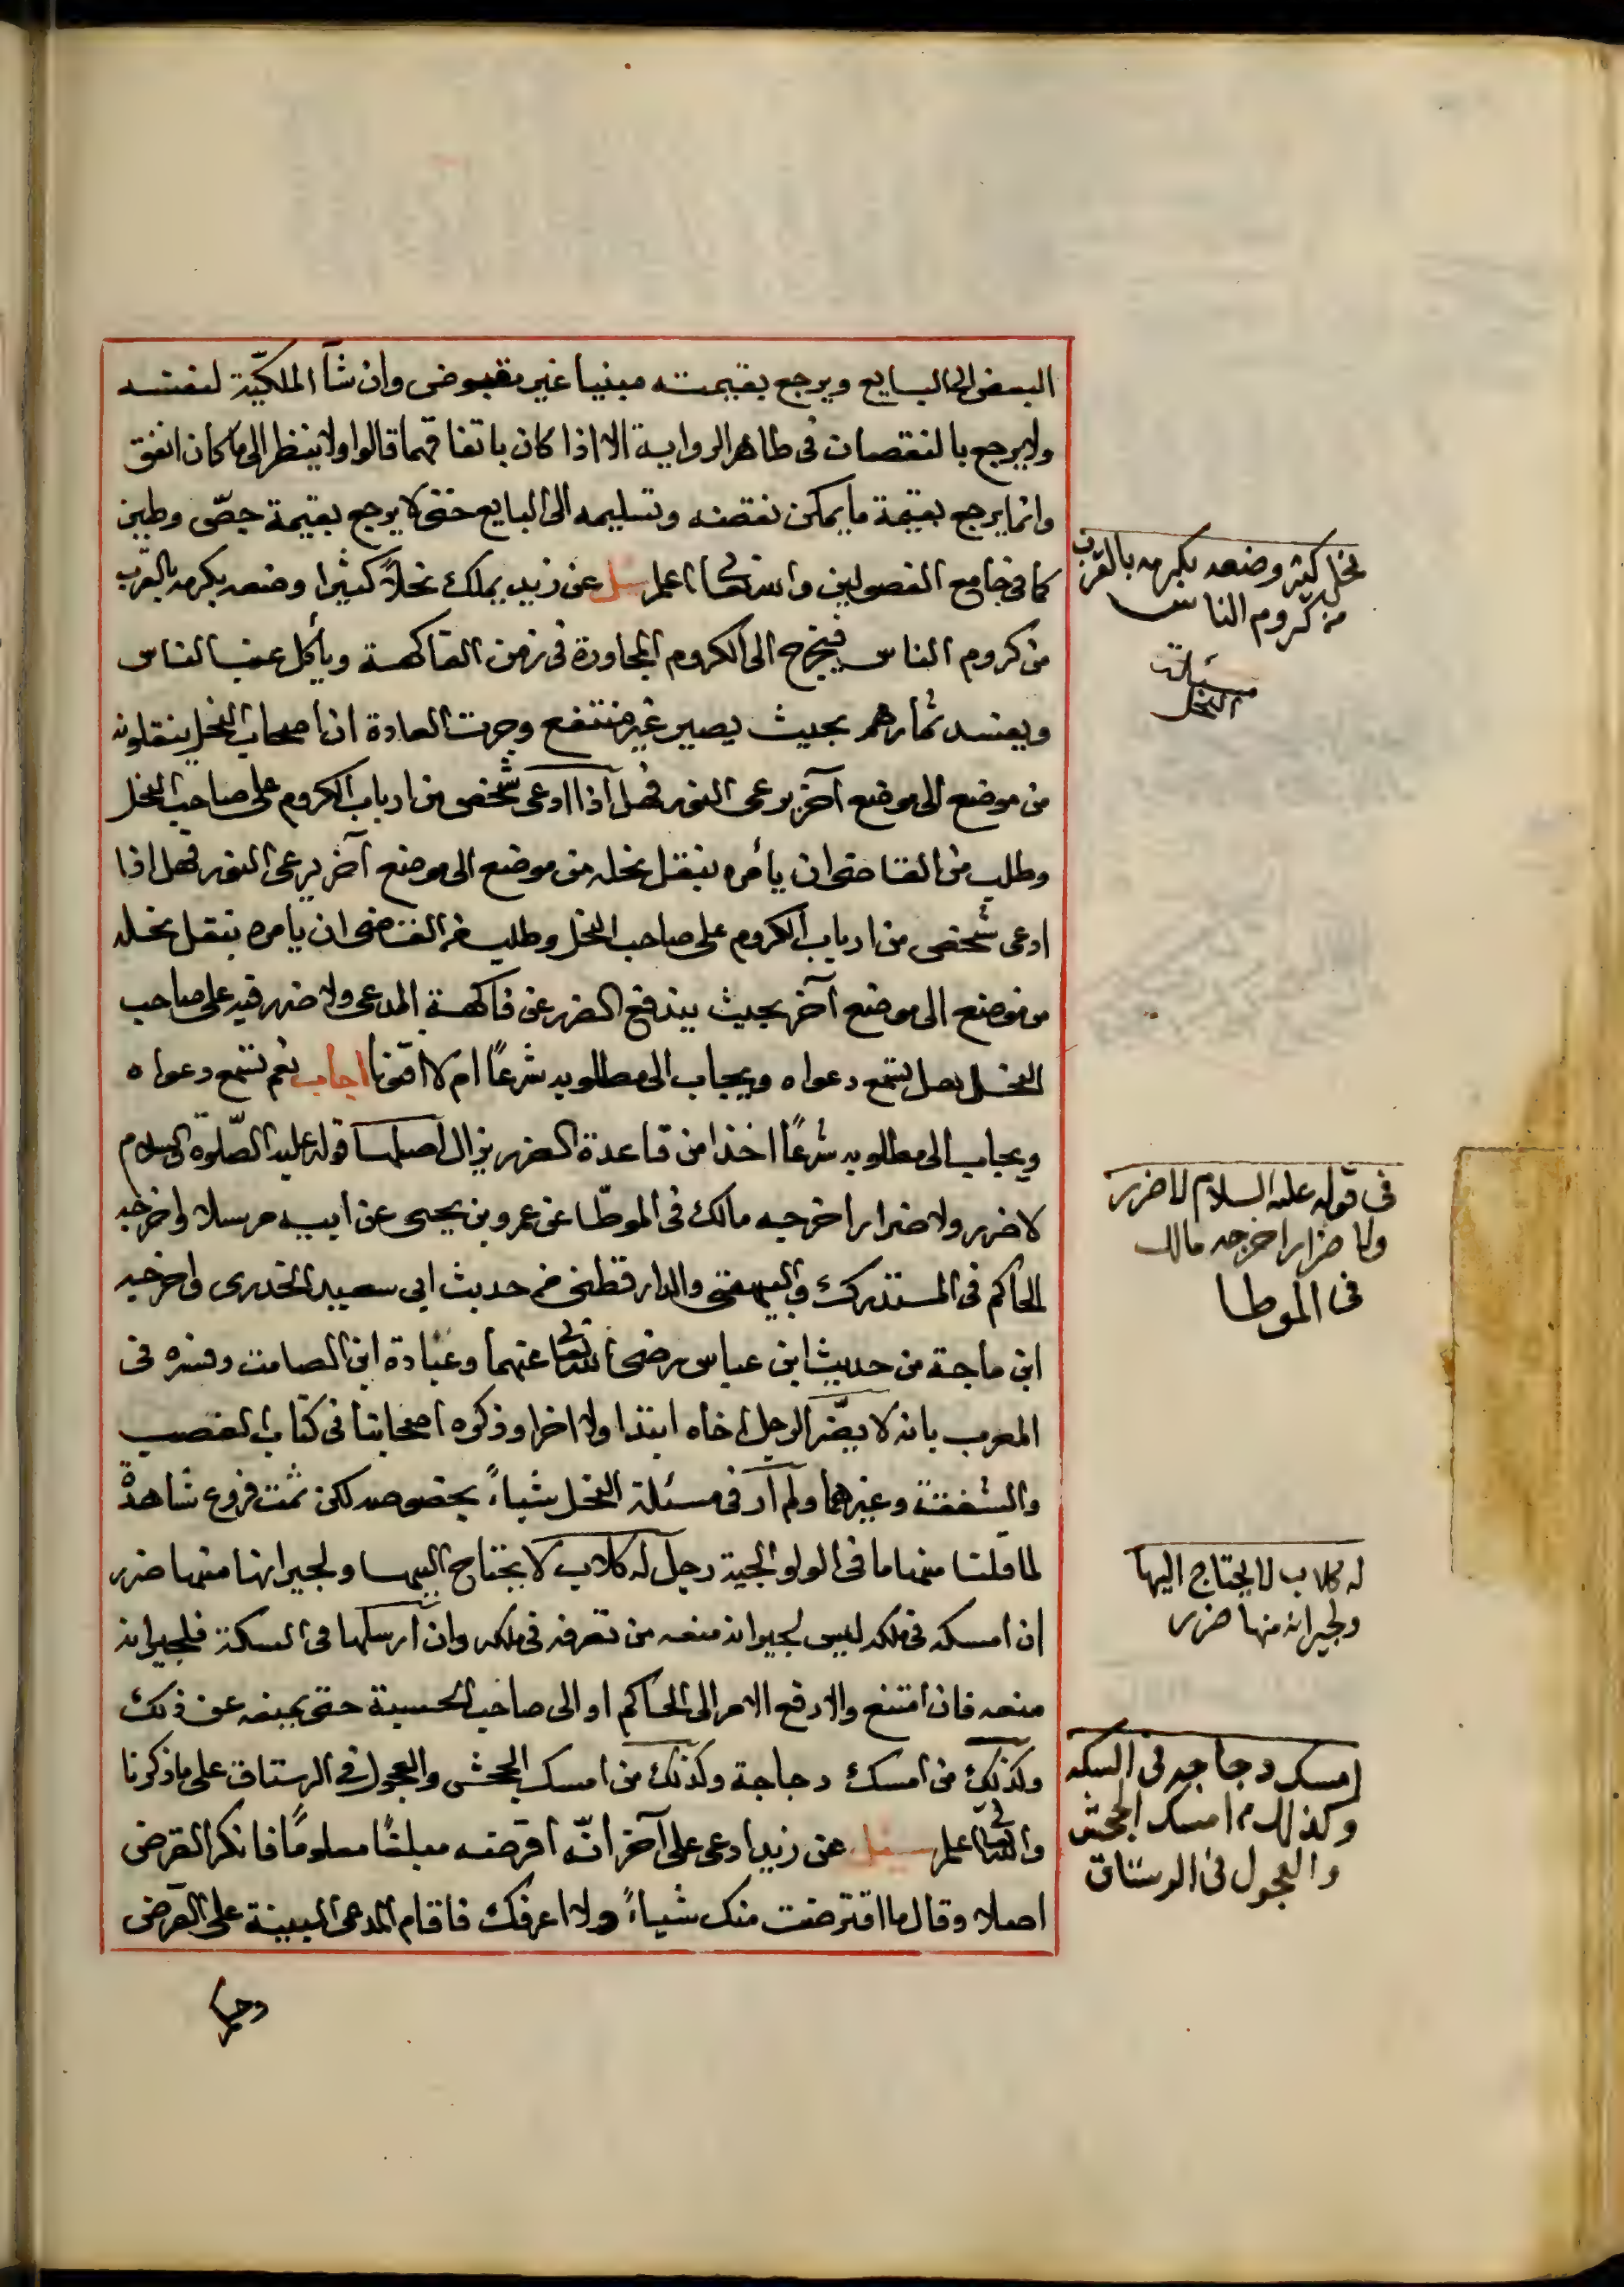 البعض الى البايع ويرجع بقيمته مبنيا غير مقبوض وان شآ الملكيّة لنفسه
ولا يرجع بالنقصان فى ظاهر الرواية الا اذا كان باتفاقهما قالوا ولا ينظر الى ما كان انفق
وانما يرجع بقيمة ما يمكن نقضه وتسليمه الى البايع حتى لا يرجع بقيمة جصّ وطين
كما فى جامع الفصولين والله تعالى اعلم سئل عن زيد يملك نحلاً كثيرا وضعه بكرمه بالقرب
من كروم الناس فيخرج الى الكروم المجاورة فى زمن الفاكهة ويأكل عنب الناس
ويفسد ثمارهم بحيث يصير غير منتفع وجرت العادة ان اصحاب النحل ينقلونه
من موضع الى موضع آخر يرعى النور فهل اذا ادعى شخص من ارباب الكروم على صاحب النحل
وطلب من القاضى ان يأمره بنقل نحله من موضع الى موضع آخر يرعى النور فهل اذا
ادعى شخص من ارباب الكروم على صاحب النحل وطلب من القاضى ان يأمره بنقل نحله
من موضع الى موضع آخر بحيث يندفع الضرر عن فاكهة المدعى ولا ضرر فيه على صاحب
النحل هل تسمع دعواه ويجاب الى مطلوبه شرعًا ام لا افتونا اجاب نعم تسمع دعواه
ويجاب الى مطلوبه شرعًا اخذا من قاعدة الضرر يزال اصلها قوله عليه الصّلوة والسلام
لا ضرر ولا ضرار اخرجه مالك فى الموطّا عن عمرو بن يحيى عن ابيه مرسلا واخرجه
الحاكم فى المستدرك والبيهقى والدارقطنى من حديث ابى سعيد الخدرى واخرجه
ابن ماجة من حديث ابن عباس رضى الله تعالى عنهما وعبادة ابن الصامت وفسره فى
المغرب بانه لا يضّر الرجل اخاه ابتدا ولا اخرا وذكره اصحابنا فى كتاب الغصب
والشفعت وغيرهما ولم أر فى مسئلة النحل شياءً بخصوصه لكن ثمت فروع شاهدة
لما قلنا منها ما فى الولوالجية رجل له كلاب لا يحتاج اليها ولجيرانها منها ضرر
ان امسكه فى ملكه ليس لجيرانه منعه من تصرفه فى ملكه وان ارسلها فى السكة فلجيرانه
منعه فان امتنع والا رفع الامر الى الحاكم او الى صاحب الحسبة حتى يمنعه عن ذلك
وكذلك من امسك دجاجة وكذلك من امسك الجحش والعجول فى الرستاق على ما ذكرنا
والله تعالى اعلم سئل عن زيد ادعى على آخر انّه اقرضه مبلغًا معلومًا فانكر القرض
اصلا وقال ما اقترضت منك شياءً ولا اعرفك فاقام المدعى البينة على القرض
نحل كثير وضعه بكرمه بالقرب
من كروم الناس
مسئلة
النحل
فى قوله عليه السلام لا ضرر
ولا ضرار اخرجه مالك
فى الموطا
له كلاب لا يحتاج اليها
ولجيرانه منها ضرر
امسك دجاجه فى السكه
وكذلك من امسك الجحش
والعجول فى الرستاق